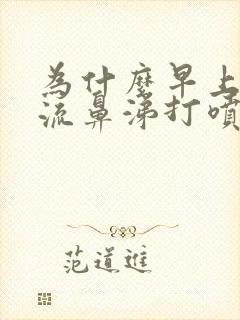 為什麼早上
流鼻涕打噴
范道進